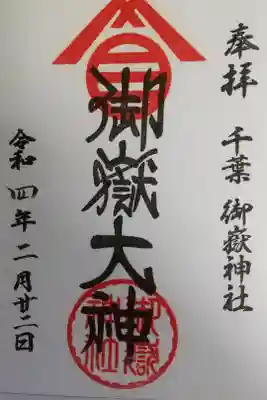 奉拝 千葉 御嶽神社
御嶽大神
令和四年二月廿二日
御嶽社